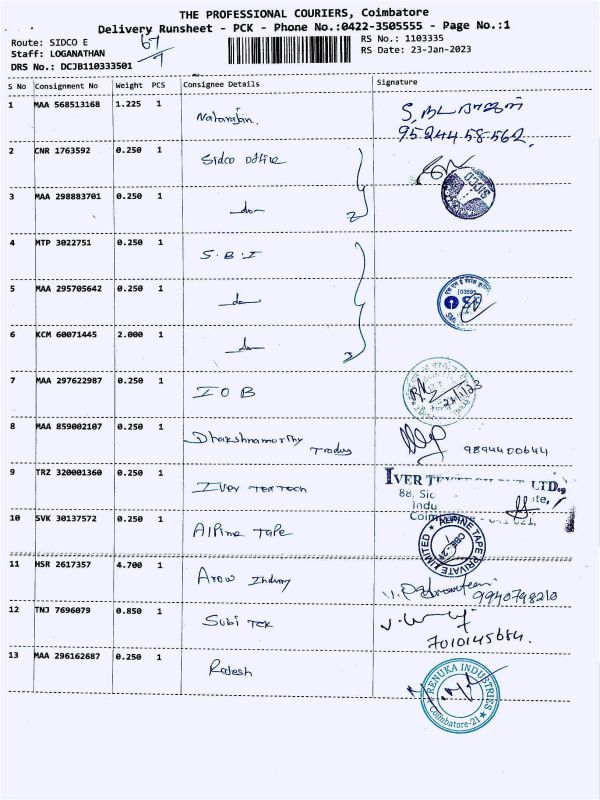 THE PROFESSIONAL COURIERS, Coimbatore
Delivery Runsheet - PCK - Phone No.:0422-3505555 - Page No.:1
Route: SIDCO E
Staff: LOGANATHAN
DRS No.: DCJB110333501
67/7
RS No.: 1103335
RS Date: 23-Jan-2023
S No Consignment No Weight PCS Consignee Details Signature
1 MAA 568513168 1.225 1 Natarajan.
95244 58-562.
2 CNR 1763592 0.250 1 Sidco office
SIDCO
3 MAA 298883701 0.250 1 -do- 2
4 MTP 3022751 0.250 1 S.B.I
5 MAA 295705642 0.250 1 -do-
6 KCM 60071445 2.000 1 -do- 3
7 MAA 297622987 0.250 1 IOB
8 MAA 859002107 0.250 1 Dhakshnamurthy Trades 9894400644
9 TRZ 320001360 0.250 1 IVer TexTech
IVER LTD.,
88, Sic
Indu
10 SVK 30137572 0.250 1 Alpine Tape
ALPINE TAPE PRIVATE LIMITED
11 HSR 2617357 4.700 1 Arow Indusy
9940798210
12 TNJ 7696079 0.850 1 Subi Tex
7010145684.
13 MAA 296162687 0.250 1 Rajesh
RENUKA INDUSTRIES
Coimbatore-21